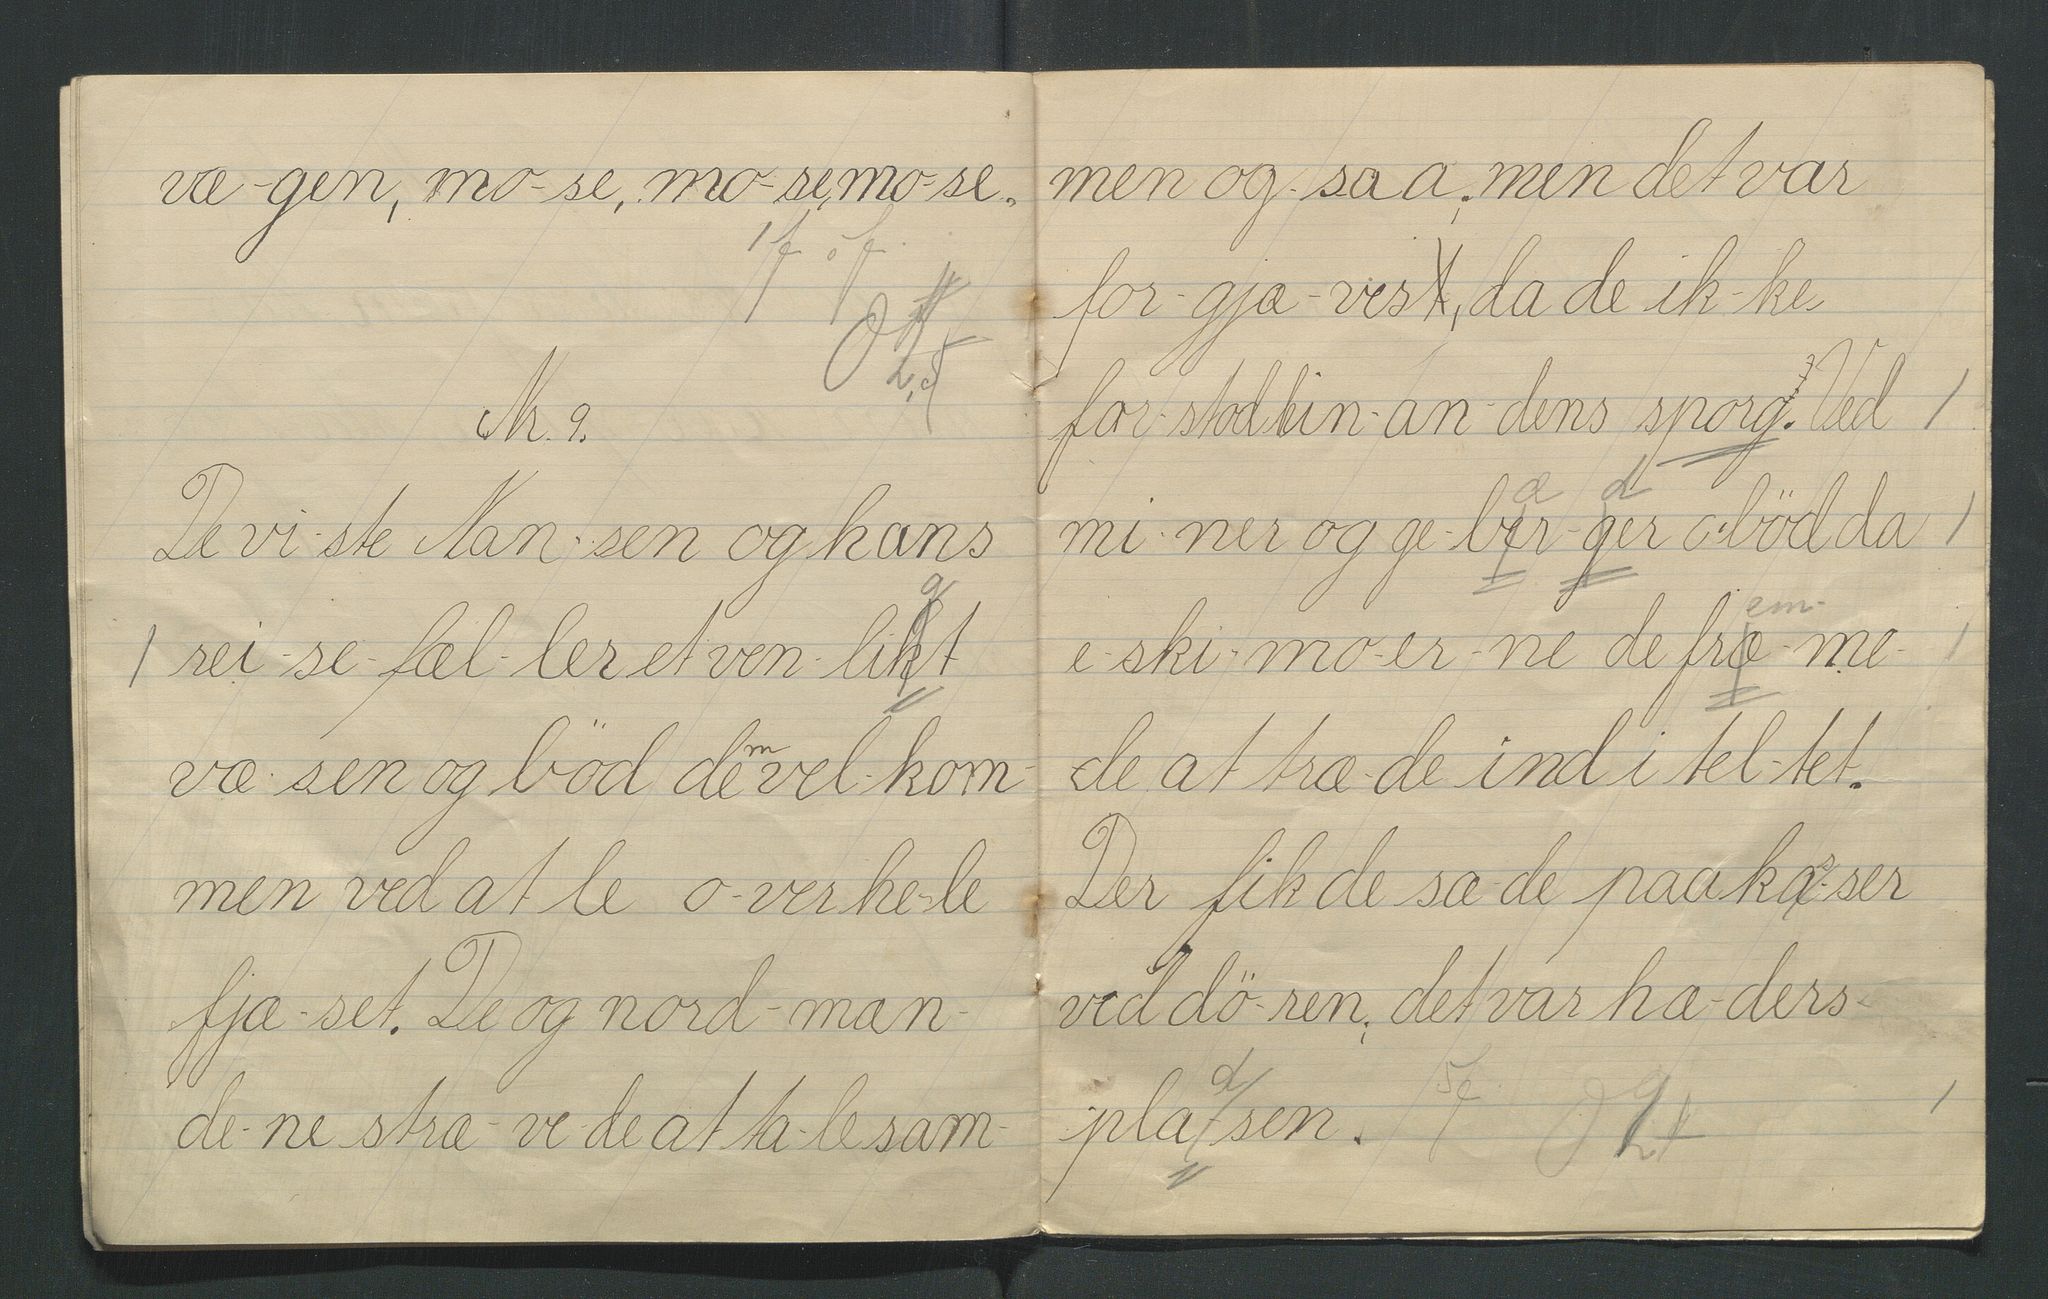 væ-gen, mo-se, mo-se, mo-se.
1f 5f.
2,5
Nr. 9.
De vi-ste Nan-sen og hans
1 rei-se-fæl-ler et ven-likt
g
væ-sen og böd dem vel-kom-
men ved at le o-ver he-le
fjæ-set. De og nord-mæn-
de-ne stræ-ve-de at ta-le sam-
men og-saa; men det var
for-gjæ-vest, da de ik-ke
for-stod hin-an-dens sporg. Ved 1
æ d
mi-ner og ge-ber-ger böd da 1
em-
e-ski-mo-er-ne de fræ-me- 1
de at træ-de ind i tel-tet.
Der fik de sæ-de paa kas-ser
ved dö-ren; det var hæ-ders-
d 5f.
platsen. 1